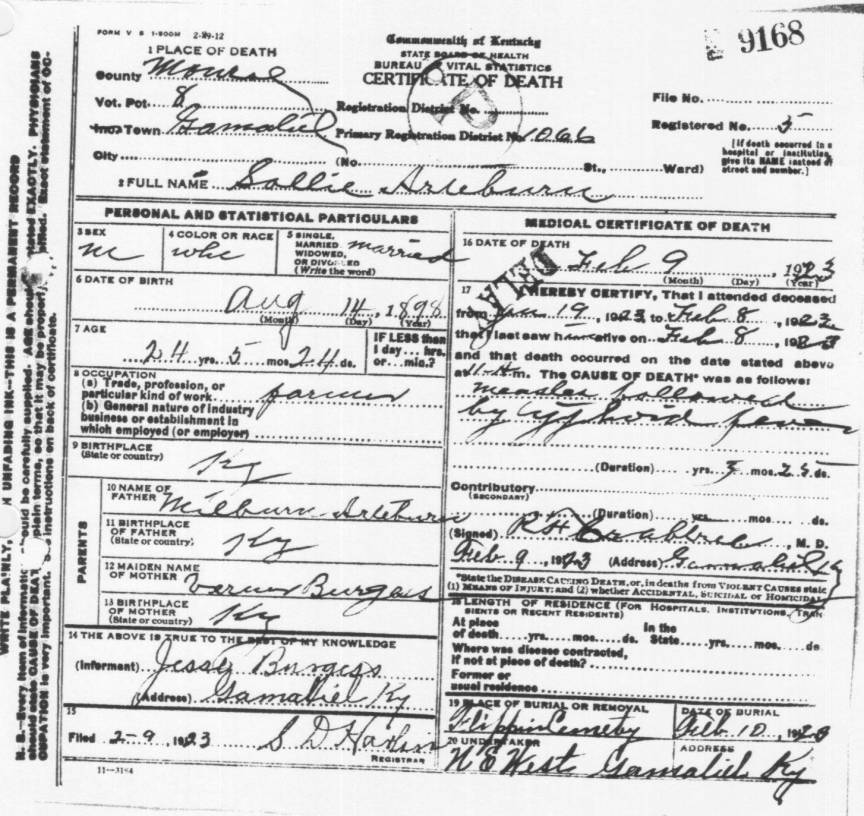 FORM V S 1-500M 2-29-12
9168
Commonwealth of Kentucky
STATE BOARD OF HEALTH
BUREAU OF VITAL STATISTICS
CERTIFICATE OF DEATH
1 PLACE OF DEATH
County Monroe
Vot. Pct 8
Inc. Town Gamaliel
City
Registration District No.
Primary Registration District No. 1066
(No. St., Ward)
File No.
Registered No. 5
[If death occurred in a hospital or institution, give its NAME instead of street and number.]
2 FULL NAME Sollie Arteburn
PERSONAL AND STATISTICAL PARTICULARS
3 SEX m
4 COLOR OR RACE whe
5 SINGLE, MARRIED, WIDOWED, OR DIVORCED (Write the word) married
6 DATE OF BIRTH
Aug 14, 1898
(Month) (Day) (Year)
7 AGE
24 yrs. 5 mos. 24 ds.
IF LESS than 1 day... hrs. or... min.?
8 OCCUPATION
(a) Trade, profession, or particular kind of work farmer
(b) General nature of industry
business or establishment in
which employed (or employer)
9 BIRTHPLACE
(State or country) Ky
PARENTS
10 NAME OF FATHER Milburn Arteburn
11 BIRTHPLACE OF FATHER (State or country) Ky
12 MAIDEN NAME OF MOTHER Burgess
13 BIRTHPLACE OF MOTHER (State or country) Ky
14 THE ABOVE IS TRUE TO THE BEST OF MY KNOWLEDGE
(Informant) Jesse Burgess
(Address) Gamaliel Ky
15
Filed 2-9, 1923 S D Harlin
REGISTRAR
11-3184
MEDICAL CERTIFICATE OF DEATH
16 DATE OF DEATH
Feb 9, 1923
(Month) (Day) (Year)
DELAY
17 I HEREBY CERTIFY, That I attended deceased
from Jan 19, 1923 to Feb 8, 1923
that I last saw him alive on Feb 8, 1923
and that death occurred on the date stated above
at m. The CAUSE OF DEATH* was as follows:
measles followed
by typhoid fever
(Duration) yrs. mos. 25 ds.
Contributory
(SECONDARY)
(Duration) yrs. mos. ds.
(Signed) , M. D.
Feb 9, 1923 (Address) Gamaliel Ky
*State the DISEASE CAUSING DEATH, or, in deaths from VIOLENT CAUSES state
(1) MEANS OF INJURY; and (2) whether ACCIDENTAL, SUICIDAL or HOMICIDAL
18 LENGTH OF RESIDENCE (FOR HOSPITALS, INSTITUTIONS, TRAN
SIENTS OR RECENT RESIDENTS)
At place of death yrs. mos. ds. In the State yrs. mos. ds.
Where was disease contracted,
If not at place of death?
Former or
usual residence
19 PLACE OF BURIAL OR REMOVAL
Flippin Cemetery
DATE OF BURIAL
Feb 10, 1923
20 UNDERTAKER
ADDRESS
West Gamaliel Ky